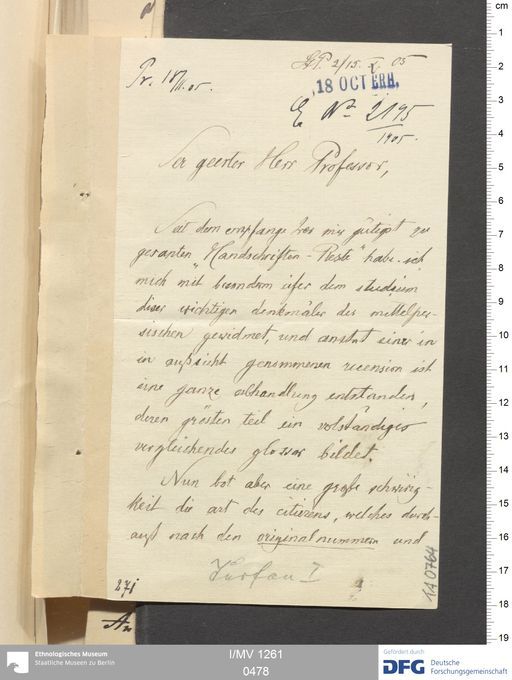 Pr. 18/II. 05.
2/15. X. 05
18 OCT ERH.
E No 2195
1905.
Ser geerter Herr Professor,
Seit dem empfange des mir gütigst zu
gesanten „Handschriften-Reste“ habe ich
mich mit besondrem eifer dem studium
diser wichtigen denkmäler des mittelper-
sischen gewidmet, und anstat einer in
in aufsicht genommenen recension ist
eine ganze abhandlung entstanden,
deren grösten teil ein volständiges
vergleichendes glossar bildet.
Nun bot aber eine große schwirig-
keit die art des citirens, welches durch-
auß nach den originalnummern und
Turfan I
271
IA 0764
cm
1
2
3
4
5
6
7
8
9
10
11
12
13
14
15
16
17
18
19
Ethnologisches Museum
Staatliche Museen zu Berlin
I/MV 1261
0478
Gefördert durch
DFG Deutsche
Forschungsgemeinschaft